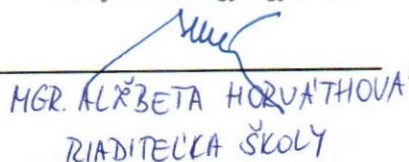 MGR. ALŽBETA HORVÁTHOVÁ
RIADITEĽKA ŠKOLY